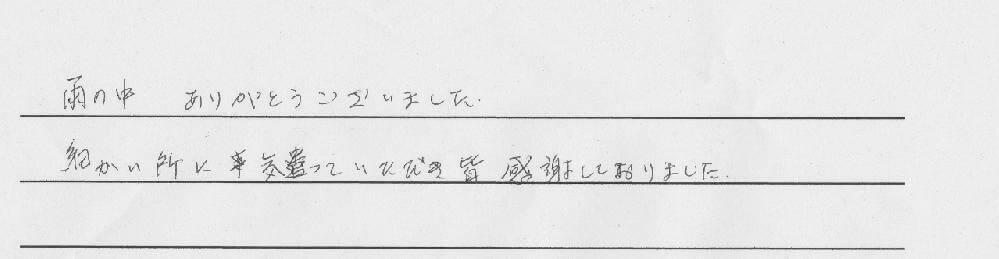 雨の中 ありがとうございました.
細かい所に気遣っていただき皆感謝しておりました.